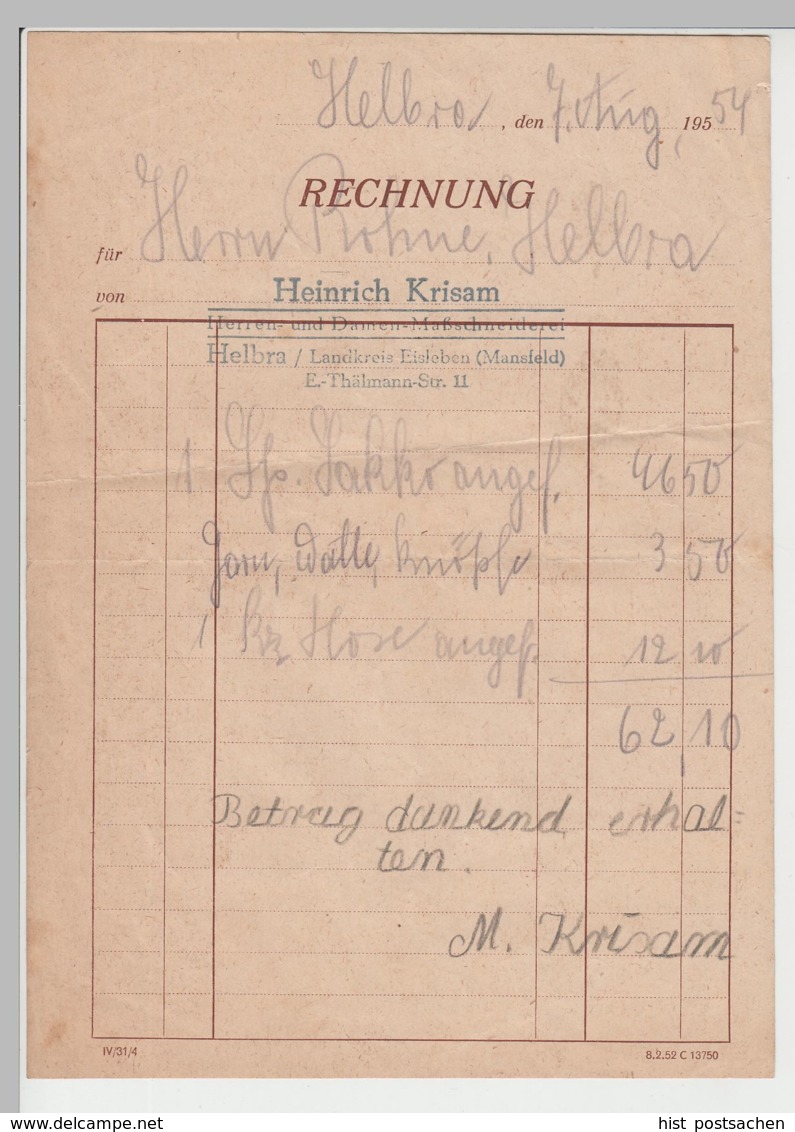 Helbra, den 7. Aug. 195 54
RECHNUNG
für Herrn Rohne, Helbra
von Heinrich Krisam
Herren- und Damen-Maßschneiderei
Helbra / Landkreis Eisleben (Mansfeld)
E.-Thälmann-Str. 11
1 Sp. Sakko angef. 46 50
Garn, Watte, Knöpfe 3 50
1 kz Hose angef. 12 10
62,10
Betrag dankend erhal=
ten.
M. Krisam
IV/31/4 8.2.52 C 13750
www.delcampe.net hist postsachen